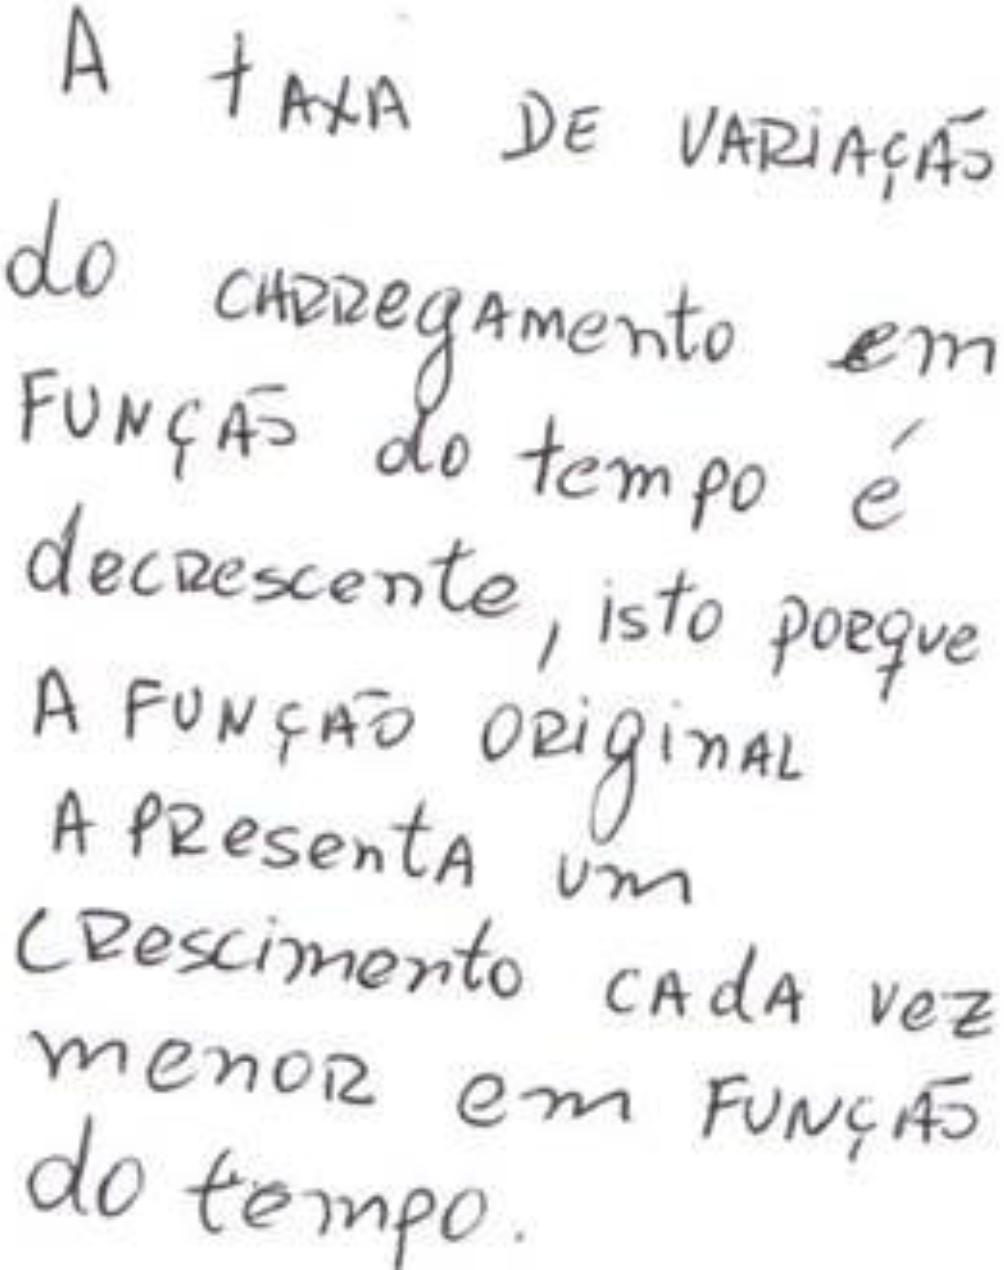 A tAXA DE VARIAÇÃO
do CARREgAmento em
FUNÇÃO do tempo é
decRescente, isto poRque
A FUNÇÃO ORiginAL
APResentA um
CRescimento CAdA vez
menoR em FUNÇÃO
do tempo.